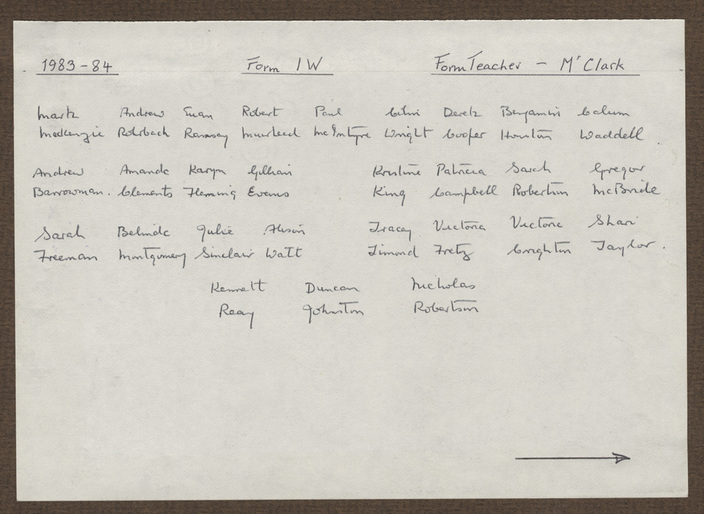 1983-84 Form 1W Form Teacher - Mr Clark
Mark Andrew Euan Robert Paul Colin Derek Benjamin Calum
Mackenzie Rohrbach Ramsay Muirhead McIntyre Wright Cooper Houston Waddell
Andrew Amanda Karyn Gillian Kristine Patricia Sarah Gregor
Barrowman. Clements Fleming Evans King Campbell Robertson McBride
Sarah Belinda Julie Alison Tracey Victoria Victoria Shari
Freeman Montgomery Sinclair Watt Fretz Crighton Taylor.
Kenneth Duncan Nicholas
Reay Johnston Robertson